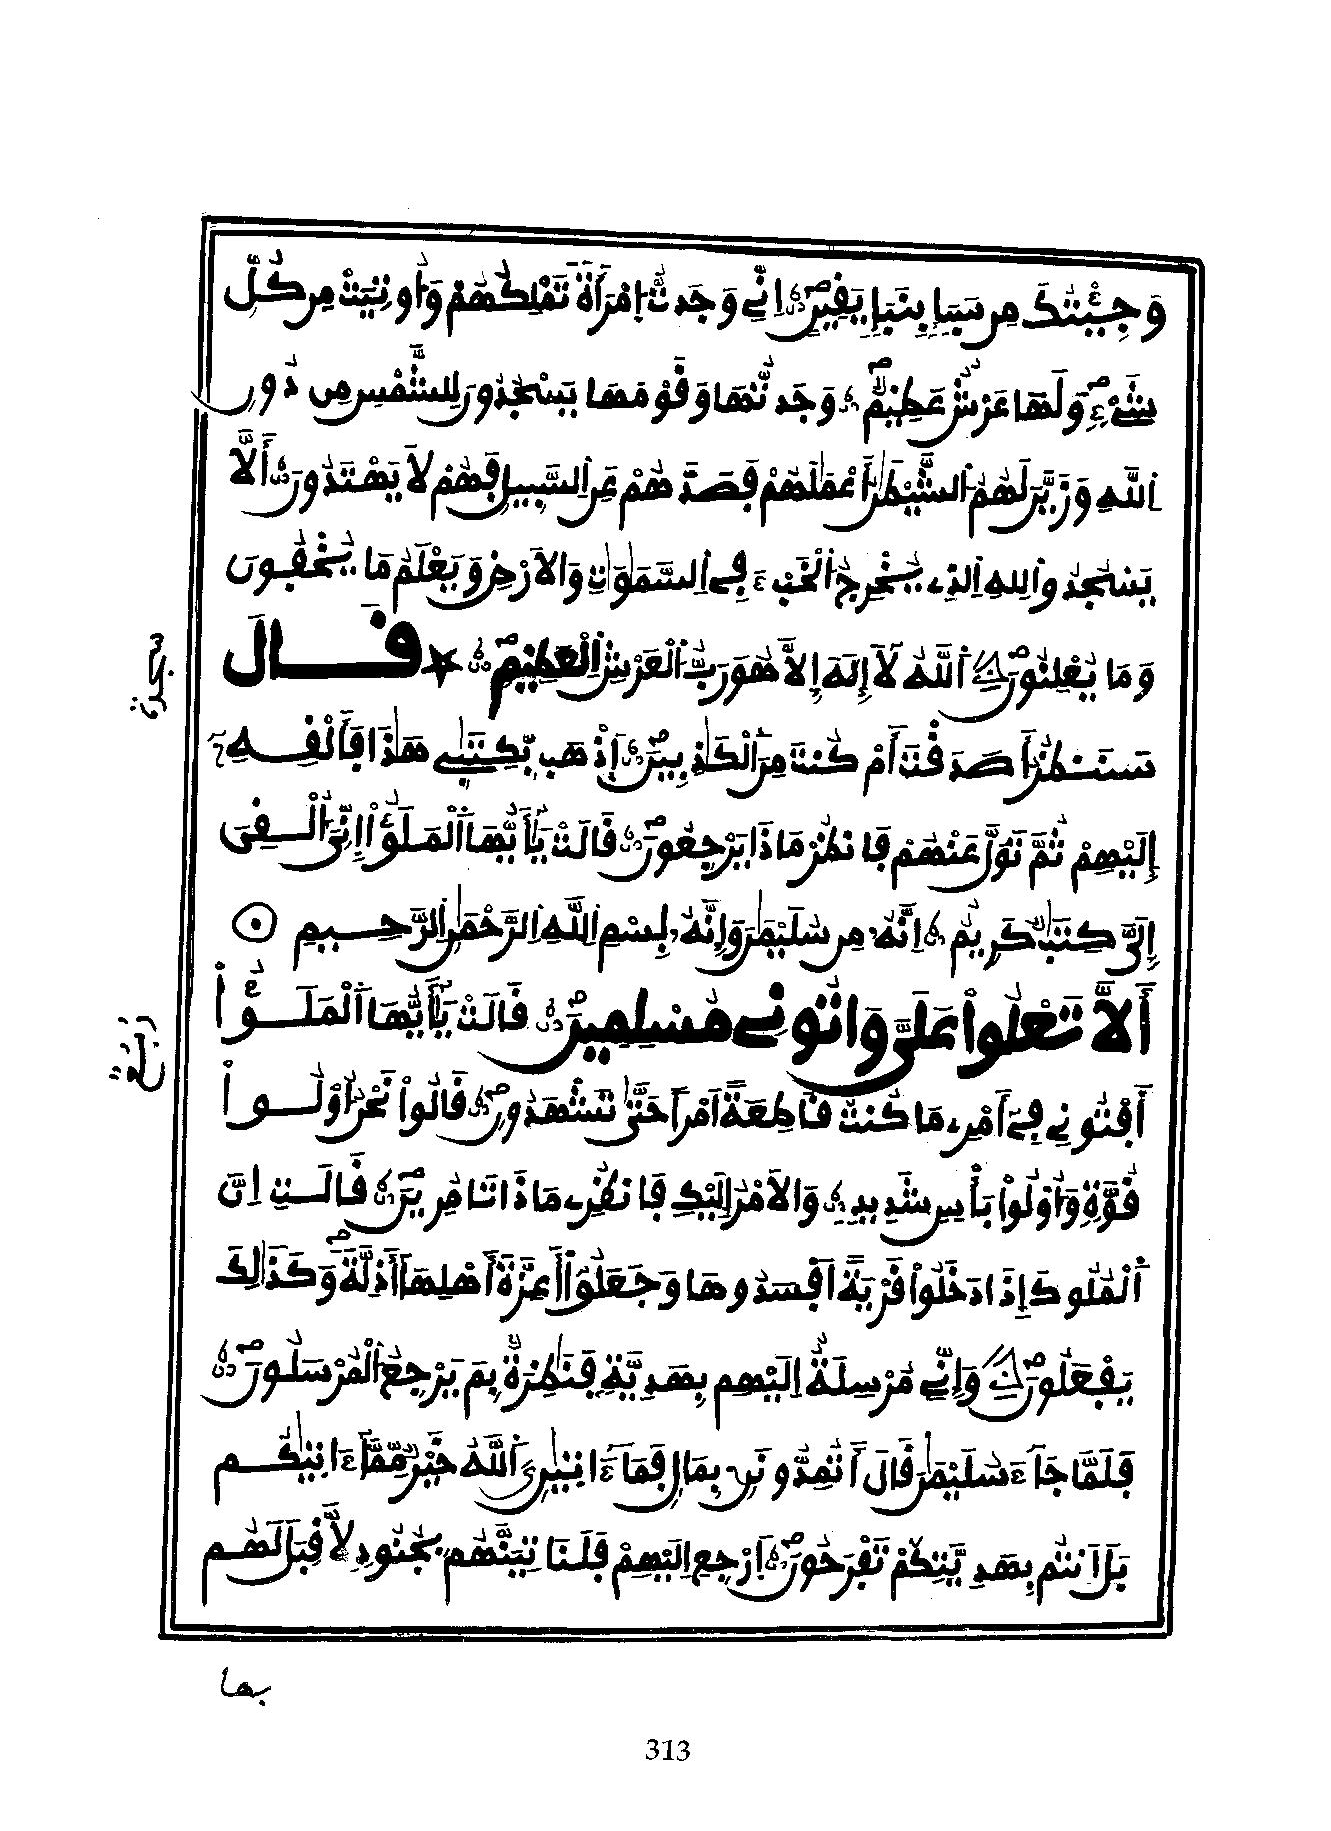 وَجِئْتُكَ مِن سَبَإٍ بِنَبَإٍ يَقِينٍ اِنِّے وَجَدتُّ اِمْرَأَةً تَمْلِكُهُمْ وَأُوتِيَتْ مِن كُلِّ
شَےْءٍ وَلَهَا عَرْشٌ عَظِيمٌ وَجَدتُّهَا وَقَوْمَهَا يَسْجُدُونَ لِلشَّمْسِ مِن دُونِ
اِ۬للَّهِ وَزَيَّنَ لَهُمُ اُ۬لشَّيْطَٰنُ أَعْمَٰلَهُمْ فَصَدَّهُمْ عَنِ اِ۬لسَّبِيلِ فَهُمْ لَا يَهْتَدُونَ أَلَّا
يَسْجُدُوا لِلهِ اِ۬لذِے يُخْرِجُ اُ۬لْخَبْءَ فِے اِ۬لسَّمَٰوَٰتِ وَالَارْضِ وَيَعْلَمُ مَا يُخْفُونَ
وَمَا يُعْلِنُونَ اَ۬للَّهُ لَا إِلَٰهَ إِلَّا هُوَ رَبُّ اُ۬لْعَرْشِ اِ۬لْعَظِيمِ قَالَ
سَنَنظُرُ أَصَدَقْتَ أَمْ كُنتَ مِنَ اَ۬لْكَٰذِبِينَ اَ۪ذْهَب بِّكِتَٰبِے هَٰذَا فَأَلْقِهِ
إِلَيْهِمْ ثُمَّ تَوَلَّ عَنْهُمْ فَانظُرْ مَاذَا يَرْجِعُونَ قَالَتْ يَٰأَيُّهَا اَ۬لْمَلَؤُاْ اِنِّيَ أُلْقِيَ
إِلَيَّ كِتَٰبٌ كَرِيمٌ اِنَّهُۥ مِن سُلَيْمَٰنَ وَإِنَّهُۥ بِسْمِ اِ۬للَّهِ اِ۬لرَّحْمَٰنِ اِ۬لرَّحِيمِ
أَلَّا تَعْلُواْ عَلَيَّ وَاتُونِے مُسْلِمِينَ قَالَتْ يَٰأَيُّهَا اَ۬لْمَلَؤُاْ
أَفْتُونِے فِے أَمْرِے مَا كُنتُ قَاطِعَةً اَمْراً حَتَّىٰ تَشْهَدُونِ قَالُواْ نَحْنُ أُوْلُواْ
قُوَّةٍ وَأُوْلُواْ بَأْسٍ شَدِيدٍ وَالَامْرُ إِلَيْكِ فَانظُرِے مَاذَا تَامُرِينَ قَالَتِ اِنَّ
اَ۬لْمُلُوكَ إِذَا دَخَلُواْ قَرْيَةً اَفْسَدُوهَا وَجَعَلُواْ أَعِزَّةَ أَهْلِهَا أَذِلَّةً وَكَذَٰلِكَ
يَفْعَلُونَ وَإِنِّے مُرْسِلَةٌ اِلَيْهِم بِهَدِيَّةٍ فَنَاظِرَةٌ بِمَ يَرْجِعُ اُ۬لْمُرْسَلُونَ
فَلَمَّا جَاءَ سُلَيْمَٰنَ قَالَ أَتُمِدُّونَنِ بِمَالٍ فَمَا ءَاتَيٰنِۦَ اَ۬للَّهُ خَيْرٌ مِّمَّا ءَاتَيٰكُم
بَلَ اَنتُم بِهَدِيَّتِكُمْ تَفْرَحُونَ اَ۪رْجِعِ اِلَيْهِمْ فَلَنَاتِيَنَّهُم بِجُنُودٍ لَّا قِبَلَ لَهُم
بها
سجدة
ربع
313